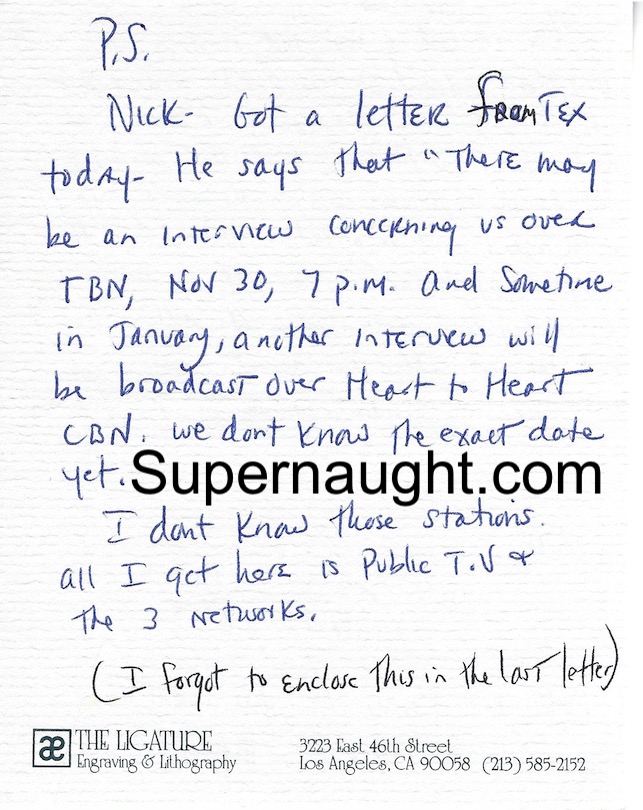 P.S.
Nick - Got a letter from Tex
today - He says that "There may
be an interview concerning us over
TBN, Nov 30, 7 p.m. and Sometime
in January, another interview will
be broadcast over Heart to Heart
CBN. we dont know the exact date
yet.
Supernaught.com
I dont know those stations.
all I get here is Public T.V &
the 3 networks.
(I forgot to enclose this in the last letter)
æ THE LIGATURE
Engraving & Lithography
3223 East 46th Street
Los Angeles, CA 90058 (213) 585-2152